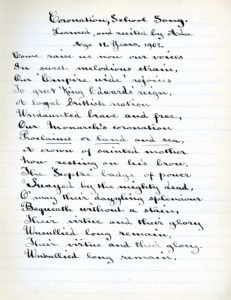 Coronation, School Song.
Learned, and recited by Ada
Age 12. Years, 1902.
Come raise we now our voices
In such melodious strain,
Our 'Empire wide' rejoices
To greet 'King Edwards' reign,
A loyal british nation
Undaunted brave and free,
Our Monarch's coronation
Proclaims on land and sea,
A crown of sainted mother
Now resting on his brow,
The 'Septre' badge of power
Swayed by the mighty dead,
O' may their dazzling splendour
Bequeath without a stain,
Their virtue and their glory
Unsullied long remain,
Their virtue and their glory.
Unsullied long remain.